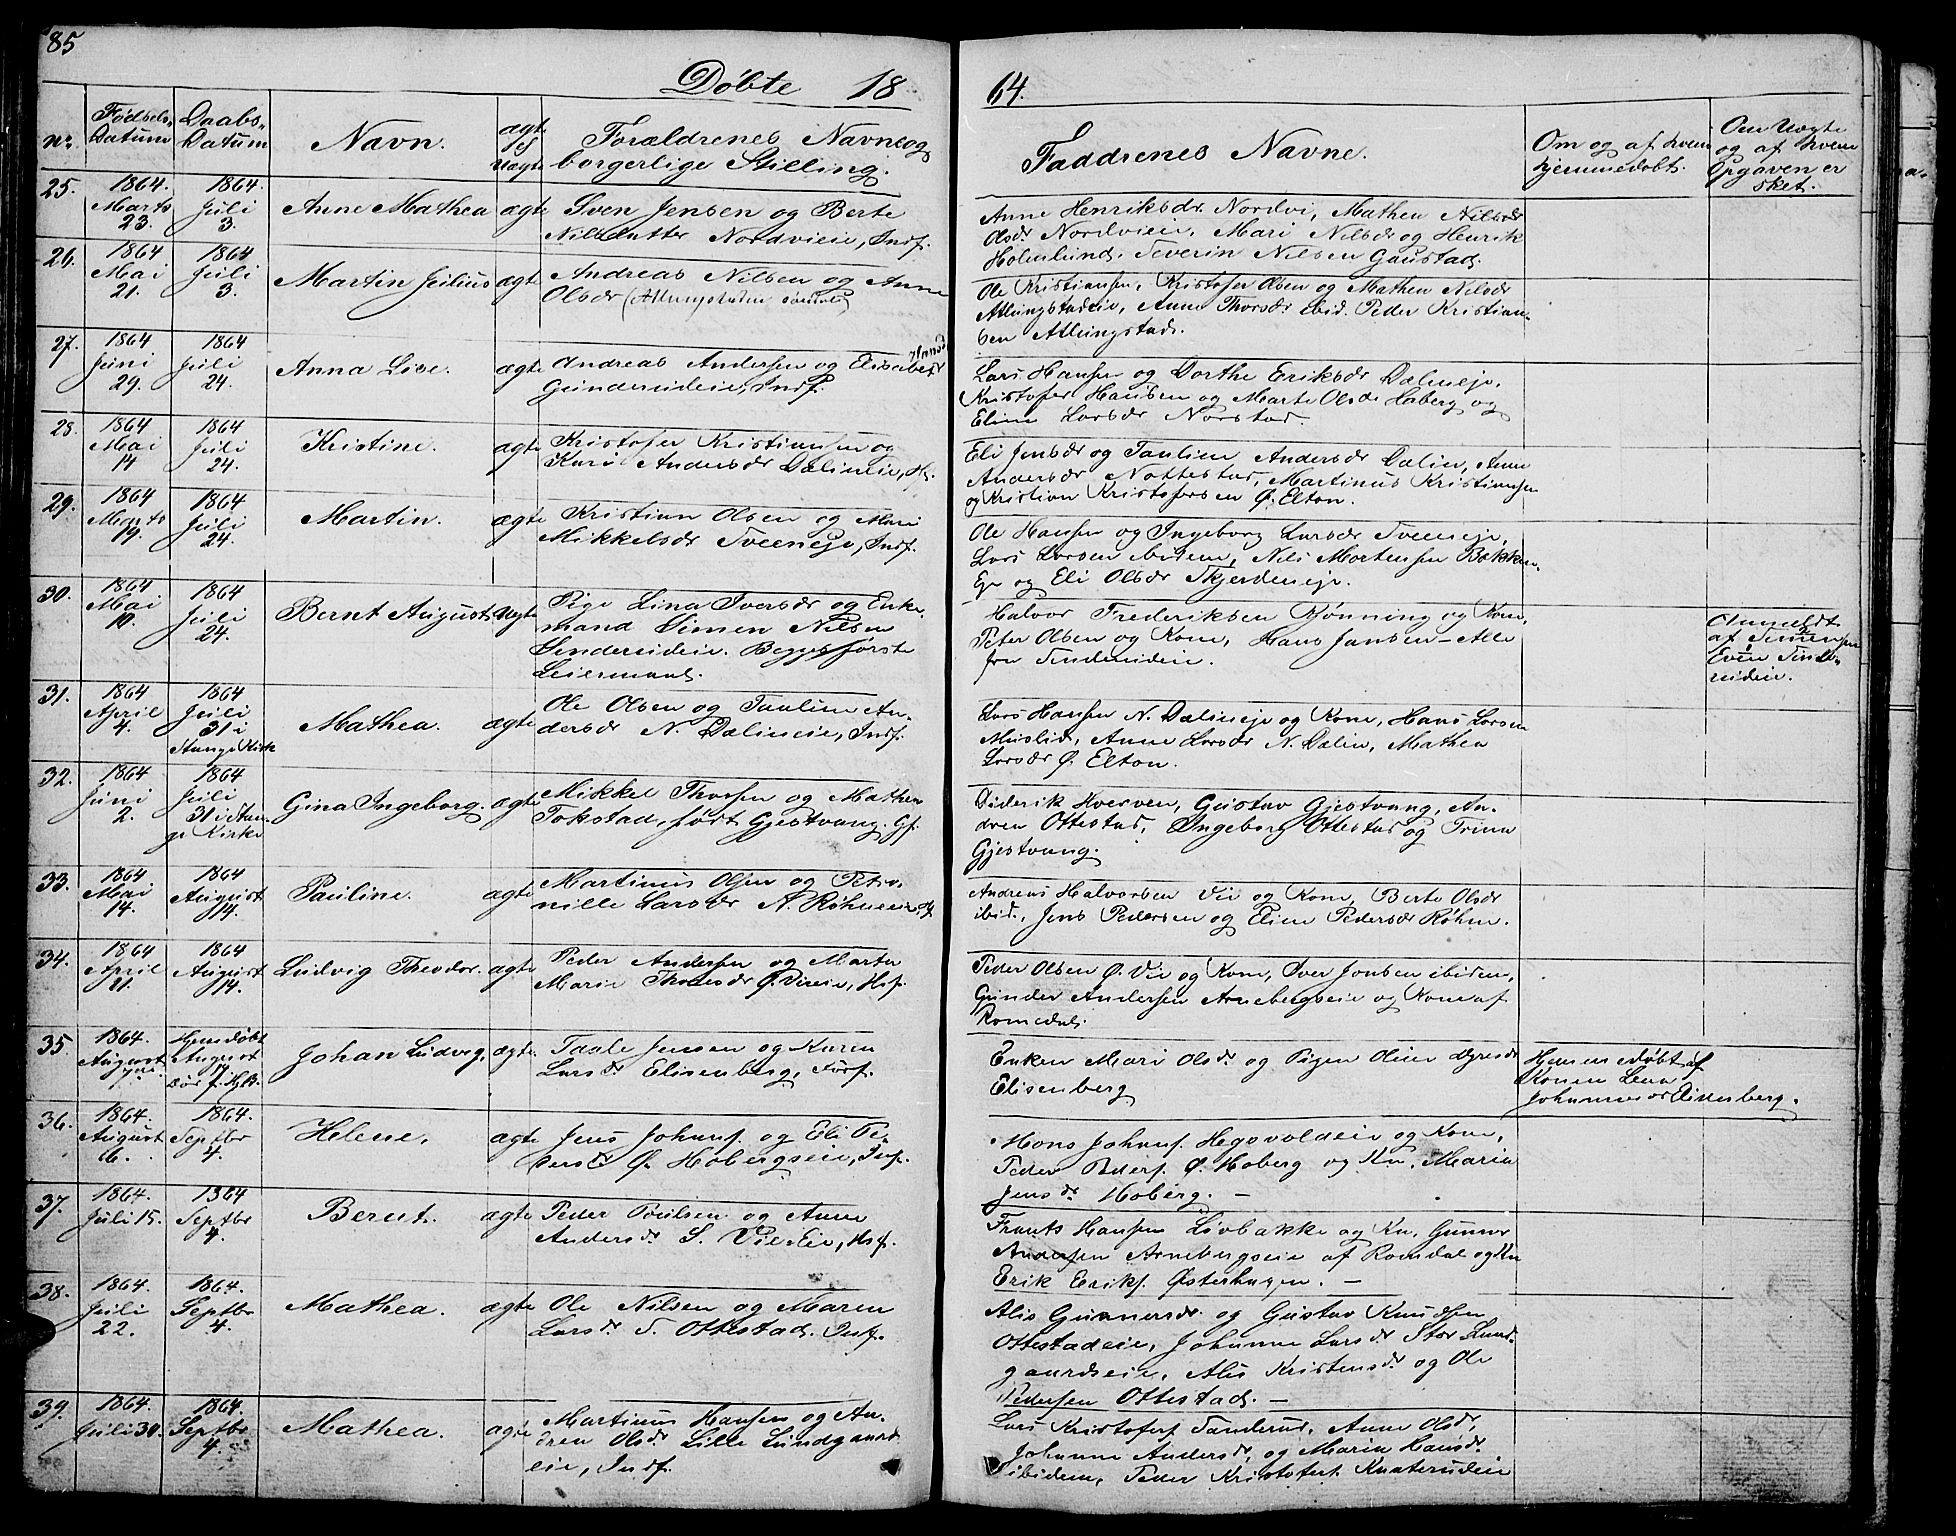 85
Døbte 18
64.
No.
Fødsels-
Datum
Daabs-
Datum
Navn.
ægte
el
Uægte
Forældrenes Navne og
borgerlige Stilling.
Faddrenes Navne.
Om og af hvem
hjemmedøbt.
Om Uægte
og af hvem
Opgaven er
sket.
25.
1864.
Marts
23.
1864.
Juli
3.
Anne Mathea
ægte
Sven Jensen og Berte
Nilsdatter Nordvieie, Indf.
Anne Henriksdr. Nordvi, Mathea Nilsdr
Olsdr Nordvieie, Mari Nilsdr og Henrik
Holmlund, Severin Nilsen Gaustad.
26.
1864.
Mai
21.
1864
Juli
3.
Martin Julius
ægte
Andreas Nilsen og Anne
Olsdr (Atlungstadeie
Ole Kristiansen, Kristofer Olsen og Mathea Nilsdr
Atlungstadeie, Anne Thorsdr ibid. Peder Kristian-
sen Atlungstad.
27.
1864
Juni
29.
1864
Juli
24.
Anna Lise.
ægte
Hansdr
Andreas Andersen og Elisabet
Gunderudeie, Indf.
Lars Hansen og Dorthe Eriksdr Dælineje,
Kristofer Hansen og Marte Olsdr Hoberg og
Eline Larsdr Norstad.
28.
1864
Mai
14
1864
Juli
24.
Kristine.
ægte
Kristofer Kristiansen og
Kari Andersdr Dælineie, Hf.
Eli Jensdr og Pauline Andersdr Dælin, Anne
Andersdr Nottestad, Martinus Kristiansen
og Kristian Kristofersen Ø. Elton.
29.
1864
Marts
19.
1864
Juli
24.
Martin.
ægte
Kristian Olsen og Mari
Mikkelsdr Tveeneje, Indf.
Ole Hansen og Ingeborg Larsdr Tveeneje,
Lars Larsen ibidem, Nils Mortensen Bækken
Eje og Eli Olsdr Skjerdeneje.
30.
1864.
Mai
10.
1864
Juli
24.
Bernt August.
Uægte
Pige Lina Iversdr og Enke
mand Simen Nilsen
Sinderudeie. Begges første
Leiermaal.
Halvor Frederiksen Rønning og Kone,
Peter Olsen og Kone, Hans Jansen - Alle
fra Sinderudeie.
Anmeldt
af Simensen
Even Sinde-
rudeie.
31.
1864
April
4.
1864
Juli
31 i
Stange Kirke
Mathea.
ægte
Ole Olsen og Pauline An-
dersdr N. Dælineie, Indf.
Lars Hansen N. Dælineje og Kone, Hans Larsen
Muslid, Anne Larsdr N. Dælin, Mathea
Larsdr Ø. Elton.
32.
1864
Juni
2.
1864
Juli
31 i Stan-
ge Kirke
Gina Ingeborg.
ægte
Mikkel Thorsen og Mathea
Tokstad, født Gjestvang. Gf.
Diderik Hverven, Gustav Gjestvang, An-
drea Ottestad, Ingeborg Ottestad og Trine
Gjestvang.
33.
1864
Mai
14.
1864
August
14.
Pauline.
ægte
Martinus Olsen og Petro-
nille Larsdr N. Røhneeie, Hf
Andreas Halvorsen Vie og Kone, Berte Olsdr
ibid., Jens Pedersen og Eline Pedersdr Røhne.
34.
1864
April
21.
1864
August
14.
Ludvig Theodor.
ægte
Peder Andersen og Marta
Marie Thoresdr Ø. Vieeie, Hsf.
Peder Olsen Ø. Vie og Kone, Iver Jonsen ibidem,
Gunder Andersen Arnebergseie og Kone af
Romedal.
35.
1864.
August
Hjemdøbt
August
Johan Ludvig.
ægte.
Paale Jensen og Karen
Larsdr Elisenberg, Indf.
Enken Mari Olsdr og Pigen Oline Syversdr
Elisenberg
Hjemmedøbt af
Konen Lena
Johannesdr Elisenberg.
36.
1864.
August
6.
1864.
Septbr
4.
Helene.
ægte
Jens Johnsf. og Eli Pe-
dersdr Ø. Hobergseie, Indf.
Mons Johnsf. Hegsvoldeie og Kone,
Peder Pederf. Ø. Hoberg og Kn, Maria
Jensdr Hoberg. -
37.
1864.
Juli 15.
1864
Septbr
4.
Bernt.
ægte
Peder Poulsen og Anne
Andersdr S. Vieeie, Hsf.
Frants Hansen Livbakke og Kn, Gunner
Andersen Arnebergseie af Romdal og Kn
Erik Eriksf. Østerhagen. -
38.
1864.
Juli
22.
1864.
Septbr
4.
Mathea.
ægte
Ole Nilsen og Maren
Larsdr S. Ottestad. Indf.
Alis Gunnersdr. og Gustav Knudsen
Ottestadeie, Johanne Larsdr Stor Lund-
gaardseie, Alis Kristensdr. og Ole
Pedersen Ottestad. -
39.
1864.
Juli 30.
1864.
Septbr
4.
Mathea.
ægte
Martinus Hansen og An-
drea Olsdr Lille Lundgaard
eie, Indf.
Lars Kristofersf Sanderud, Anne Olsdr,
Johanne Andersdr, og Maria Hansdr.
ibidem, Peder Kristofersf. Knaterudeie